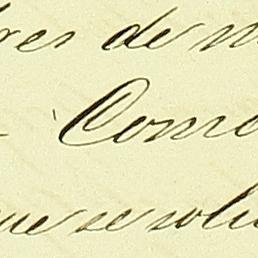 res de
Como
que se solu